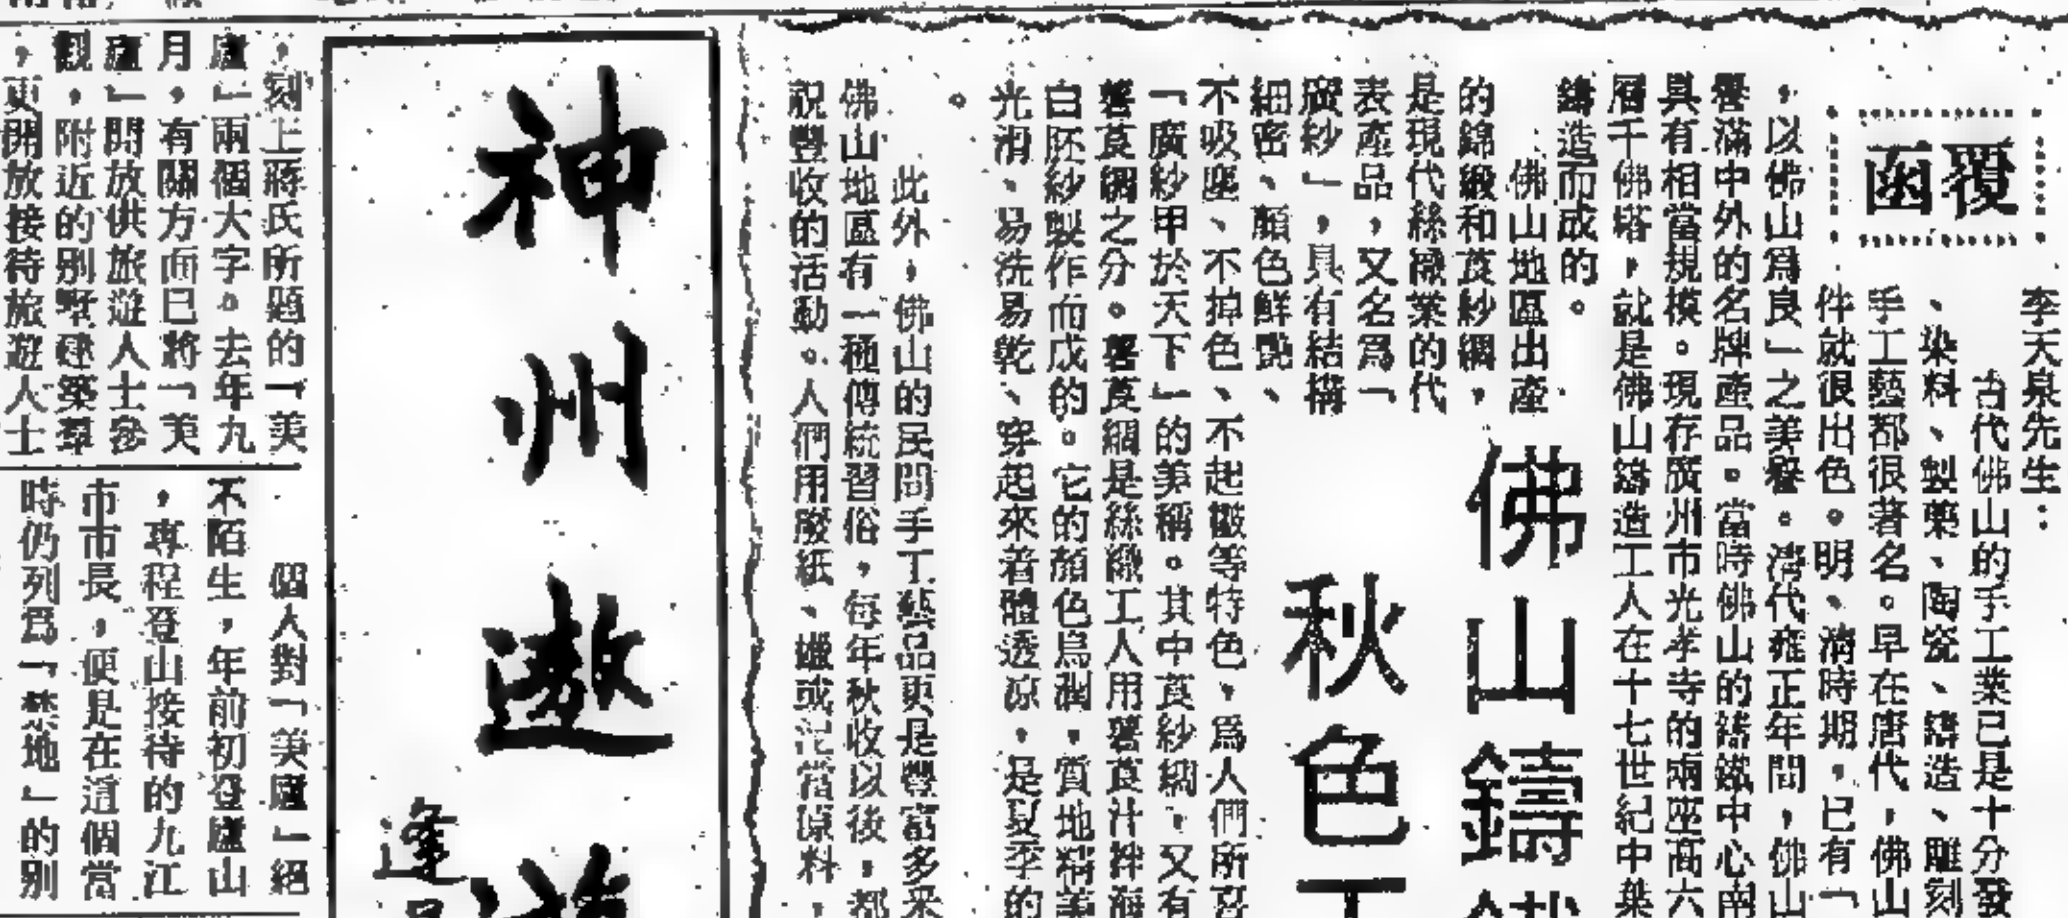 覆函
李天泉先生：
古代佛山的手工業已是十分發
、染料、製藥、陶瓷、鑄造、雕刻
手工藝都很著名。早在唐代，佛山
件就很出色。明、清時期，已有「
，以佛山爲良」之美譽。清代雍正年間，佛山
譽滿中外的名牌產品。當時佛山的鑄鐵中心南
具有相當規模。現存廣州市光孝寺的兩座高六
層千佛塔，就是佛山鑄造工人在十七世紀中葉
鑄造而成的。
佛山鑄
秋色
佛山地區出產
的錦緞和莨紗綢，
是現代絲織業的代
表產品，又名爲「
廣紗」，具有結構
細密、顏色鮮艷、
不吸塵、不掉色、不起皺等特色，爲人們所喜
「廣紗甲於天下」的美稱。其中莨紗綢，又有
薯莨綢之分。薯莨綢是絲織工人用薯莨汁拌海
白胚紗製作而成的。它的顏色烏潤，質地精美
光滑、易洗易乾、穿起來着體透凉，是夏季的
。
此外，佛山的民間手工藝品更是豐富多采
佛山地區有一種傳統習俗，每年秋收以後，都
祝豐收的活動。人們用廢紙、蠟或泥當原料，
神州遨遊
逢
，刻上蔣氏所題的「美
廬」兩個大字。去年九
月，有關方面已將「美
廬」開放供旅遊人士參
觀，附近的別墅建築羣
，更開放接待旅遊人士
個人對「美廬」絕
不陌生，年前初登廬山
，專程登山接待的九江
市市長，便是在這個當
時仍列爲「禁地」的別